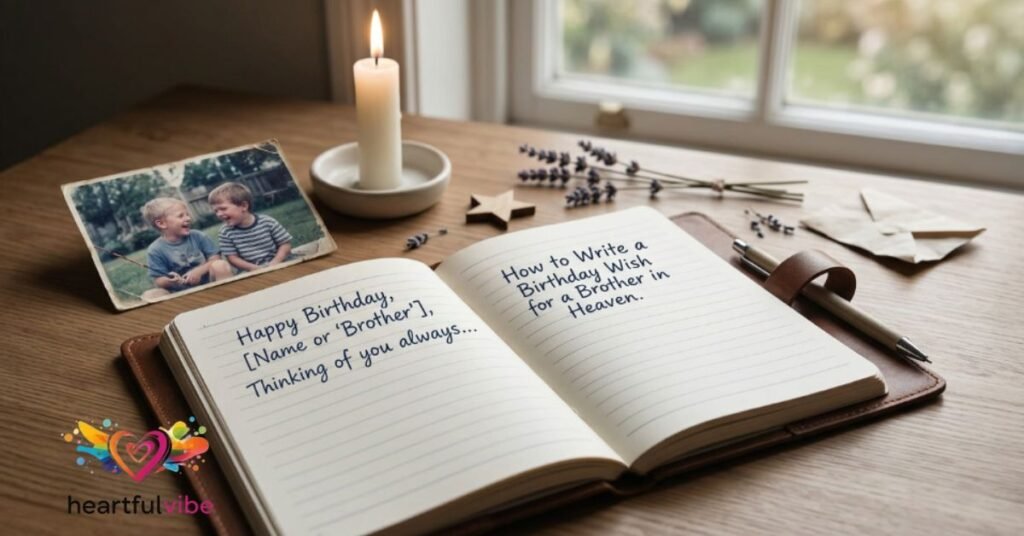 Happy Birthday,
[Name or 'Brother'],
Thinking of you always...
How to Write a
Birthday Wish
for a Brother in
Heaven.
heartfulvibe